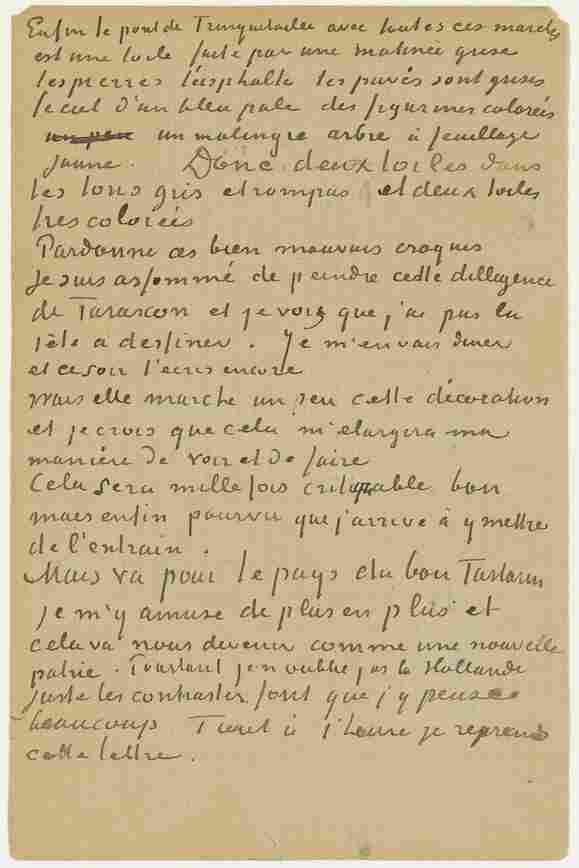 Enfin le pont de Trinquetaille avec toutes ces marches
est une toile faite par une matinée grise
les pierres l'asphalte les pavés sont grises
le ciel d'un bleu pale des figurines colorées
un malingre arbre à feuillage
jaune. Donc deux toiles dans
les tons gris et rompus et deux toiles
tres colorées
Pardonne ces bien mauvais croquis
Je suis assommé de peindre cette dilligence
de Tarascon et je vois que j'ai pas la
tête a dessiner. Je m'en vais diner
et ce soir t'ecris encore
mais elle marche un peu cette décoration
et je crois que cela m'elargira ma
manière de voir et de faire
Cela sera mille fois critiquable bon
mais enfin pourvu que j'arrive à y mettre
de l'entrain.
Mais va pour le pays du bon Tartarin
je m'y amuse de plus en plus et
cela va nous devenir comme une nouvelle
patrie. Pourtant j'en oublie pas la Hollande
juste les contrastes font que j'y pense
beaucoup Tout à l'heure je reprends
cette lettre.